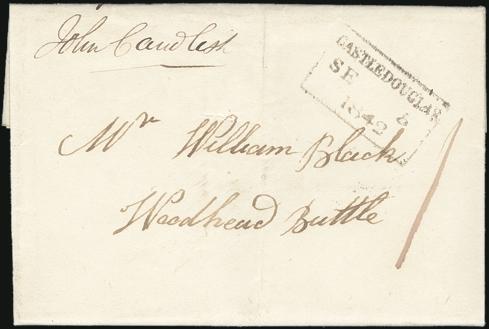 John Candlish
CASTLEDOUGLAS
SE 8
1842
Mr William Black
Woodhead Buttle
1